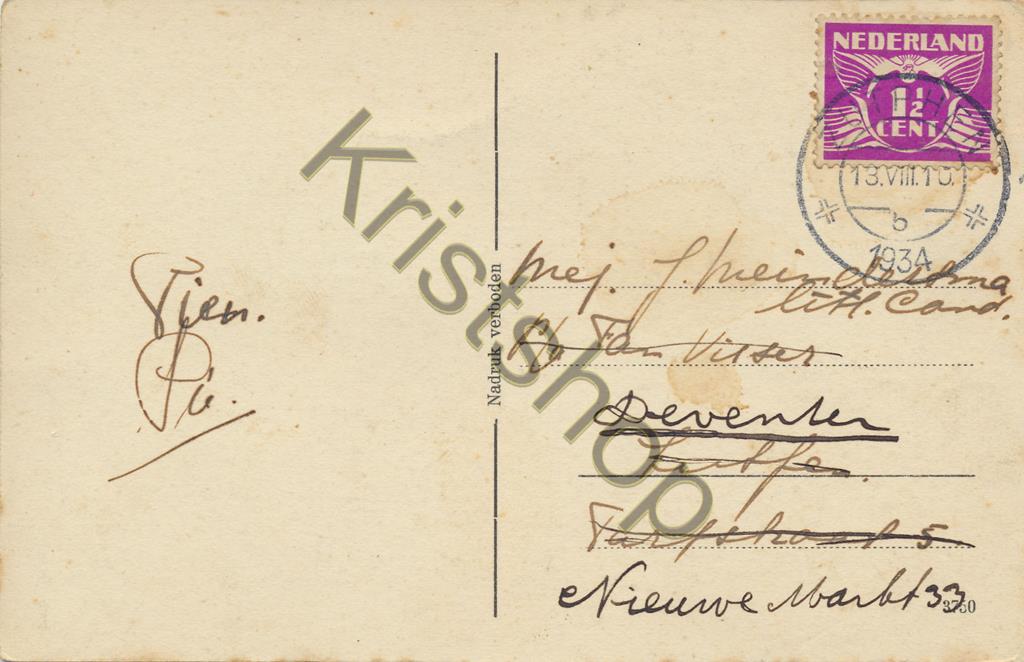 NEDERLAND
1½
CENT
13.VIII.10.
b
1934
Kristshop
Nadruk verboden
Tien.
Pu.
Mej. J. Meindersma
litt. Cand.
Fam Visser
Deventer
Zutfen.
Turfstraat 5
Nieuwe Markt 33
3750